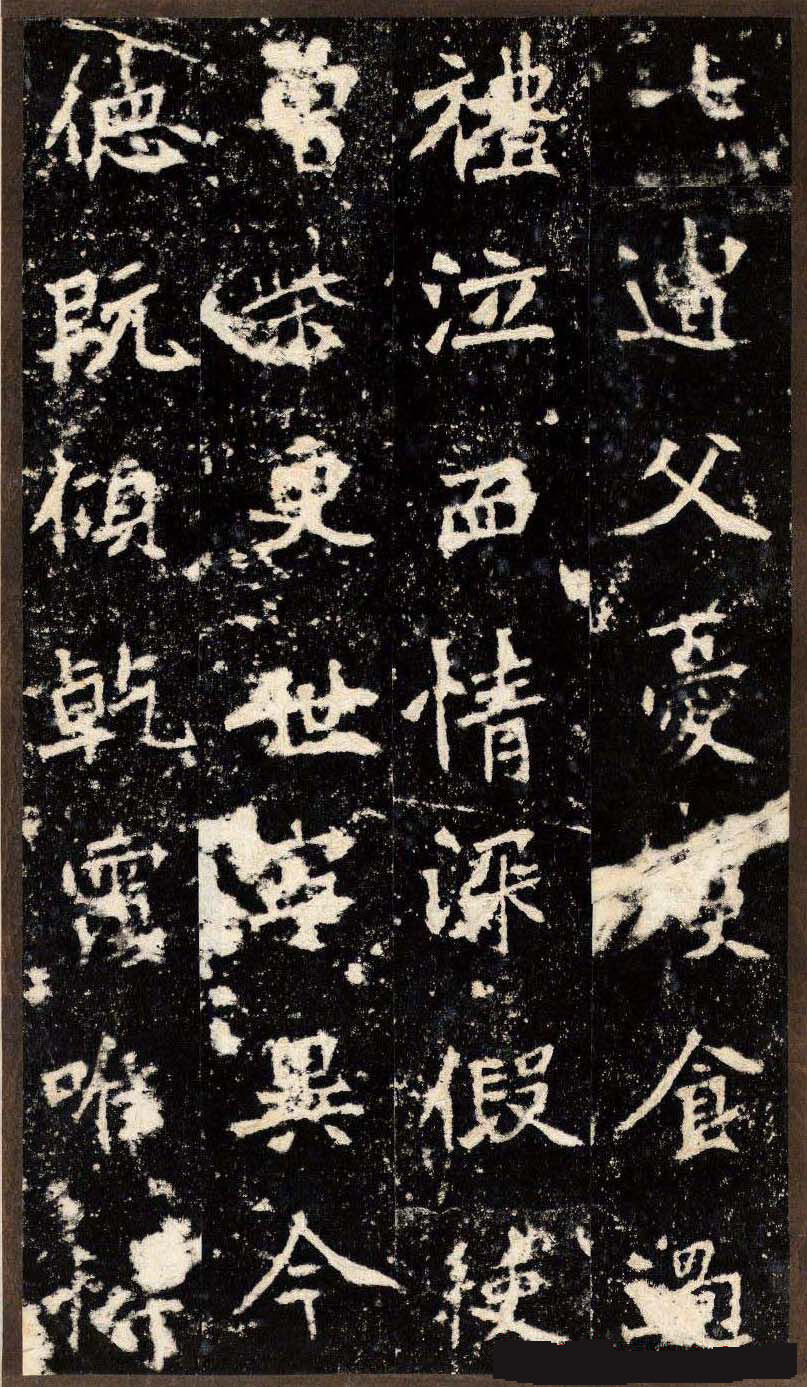 七遘父憂寢食過
禮泣血情深假使
曾柴更世寧異今
德既傾乾覆唯恃